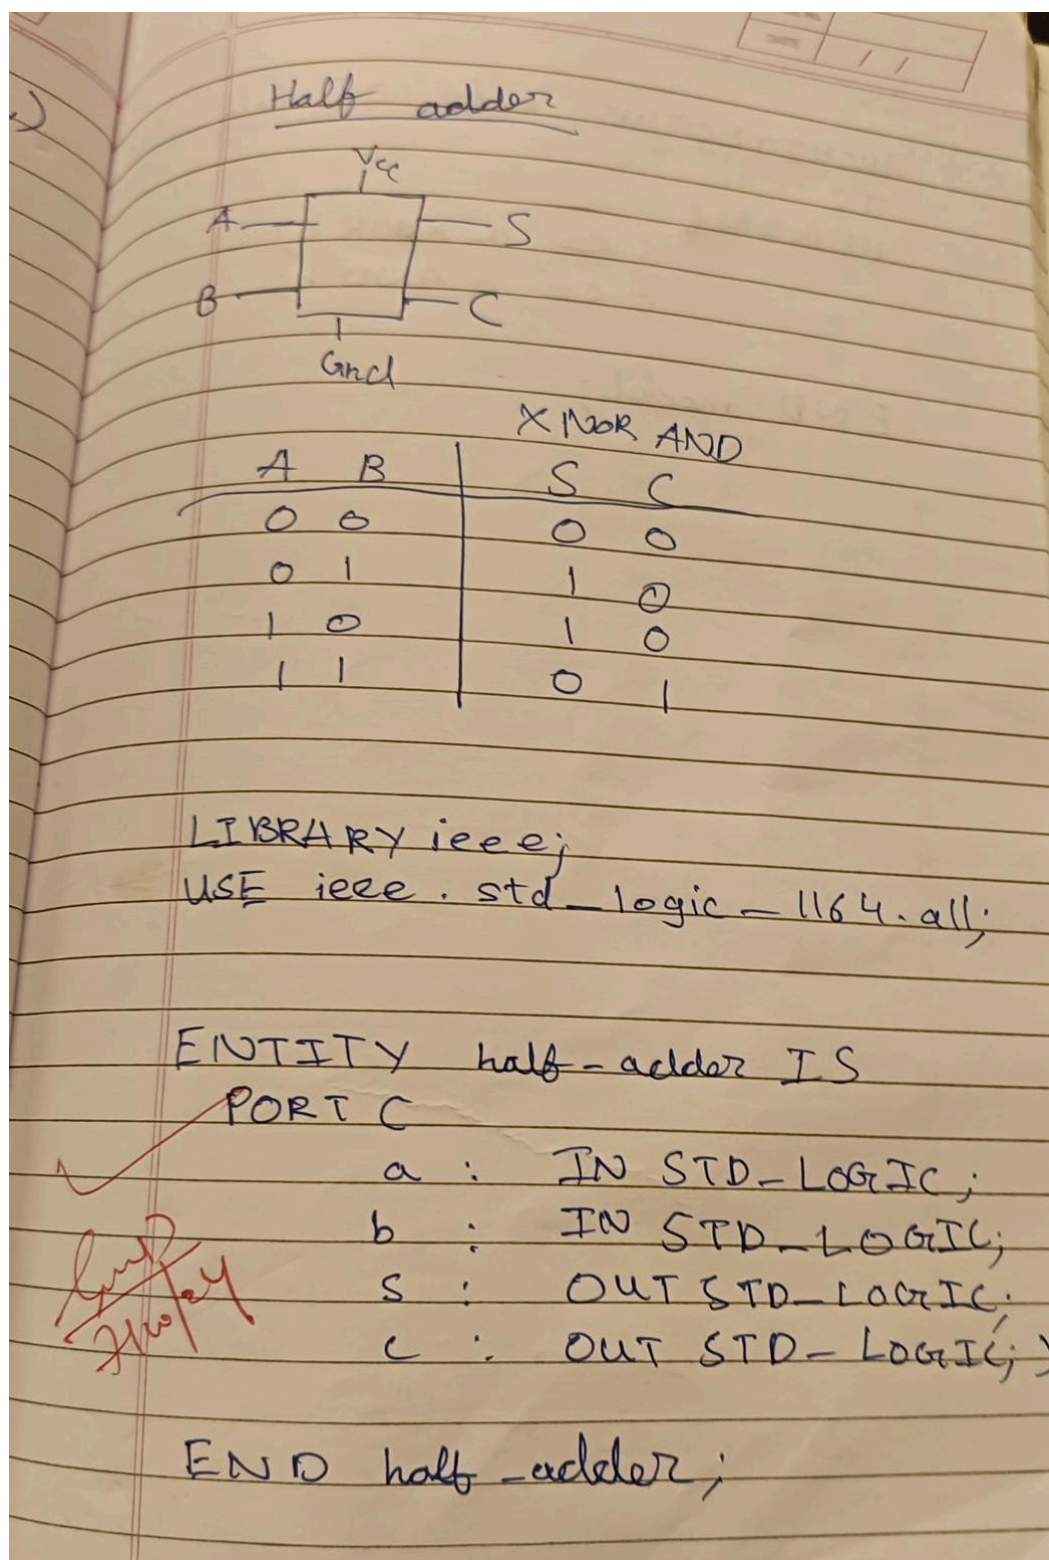 Half adder
Vcc
A S
B C
Gnd
XNOR AND
A B S C
0 0 0 0
0 1 1 0
1 0 1 0
1 1 0 1
LIBRARY ieee;
USE ieee.std_logic_1164.all;
ENTITY half-adder IS
PORT (
a : IN STD_LOGIC;
b : IN STD_LOGIC;
s : OUT STD_LOGIC;
c : OUT STD_LOGIC; )
END half_adder;